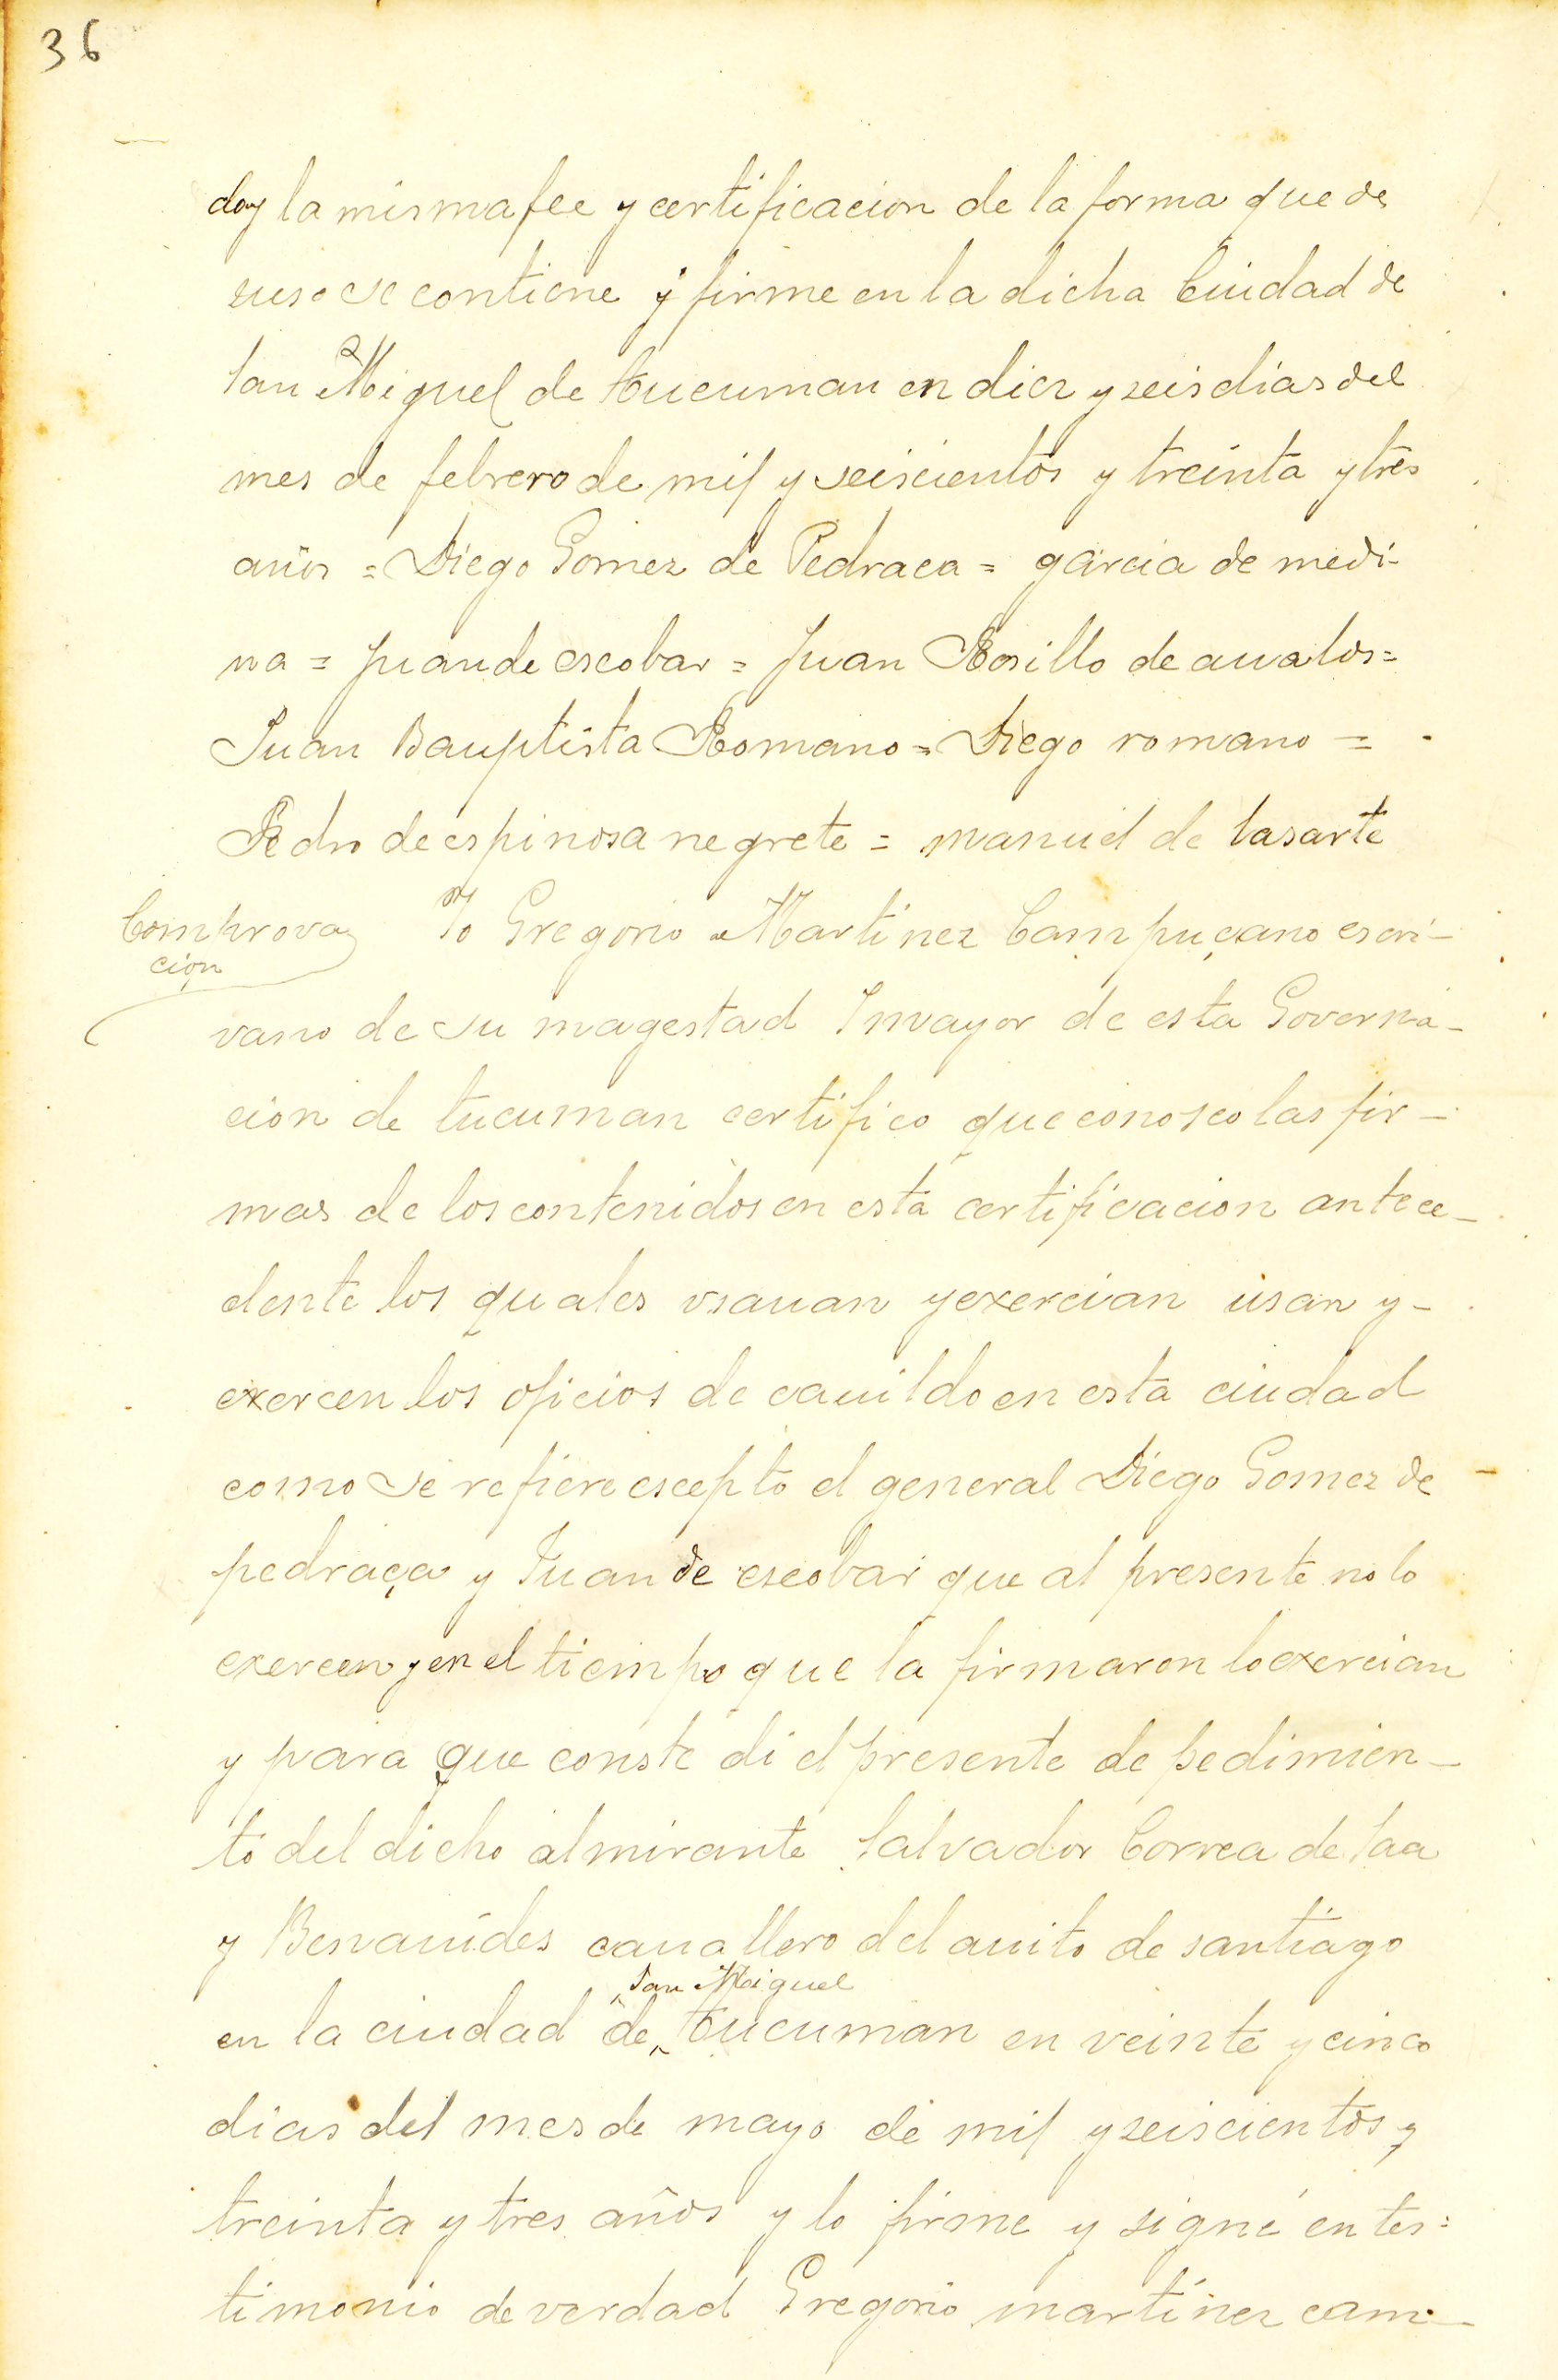 36
doy la misma fee y certificacion de la forma que de
suso se contiene y firme en la dicha Ciudad de
San Miguel de tucuman en diez y seis dias del
mes de febrero de mil y seiscientos y treinta y tres
años = Diego Gomez de Pedraca = garcia de medi-
na = Juan de escobar = Juan Rosillo de aualos =
Juan Bauptista Romano = Diego romano =
Pedro de espinosa negrete = manuel de lasarte
Comprova
cion
Yo Gregorio Martinez Campuçano escri-
vano de su magestad Imayor de esta Governa-
cion de tucuman certifico que conosco las fir-
mas de los contenidos en esta certificacion antece-
dente los quales vsauan y exercian usan y-
exercen los oficios de cauildo en esta ciudad
como se refiere escepto el general Diego Gomez de
pedraça y Juan de escobar que al presente no lo
exercen y en el tiempo que la firmaron lo exercian
y para que conste di el presente de pedimien-
to del dicho almirante Salvador Correa de Saa
y Benauides cauallero del auito de santiago
San Miguel
en la ciudad de tucuman en veinte y cinco
dias del mes de mayo de mil y seiscientos y
treinta y tres años y lo firme y signé en tes=
timonio de verdad Gregorio martinez cam-